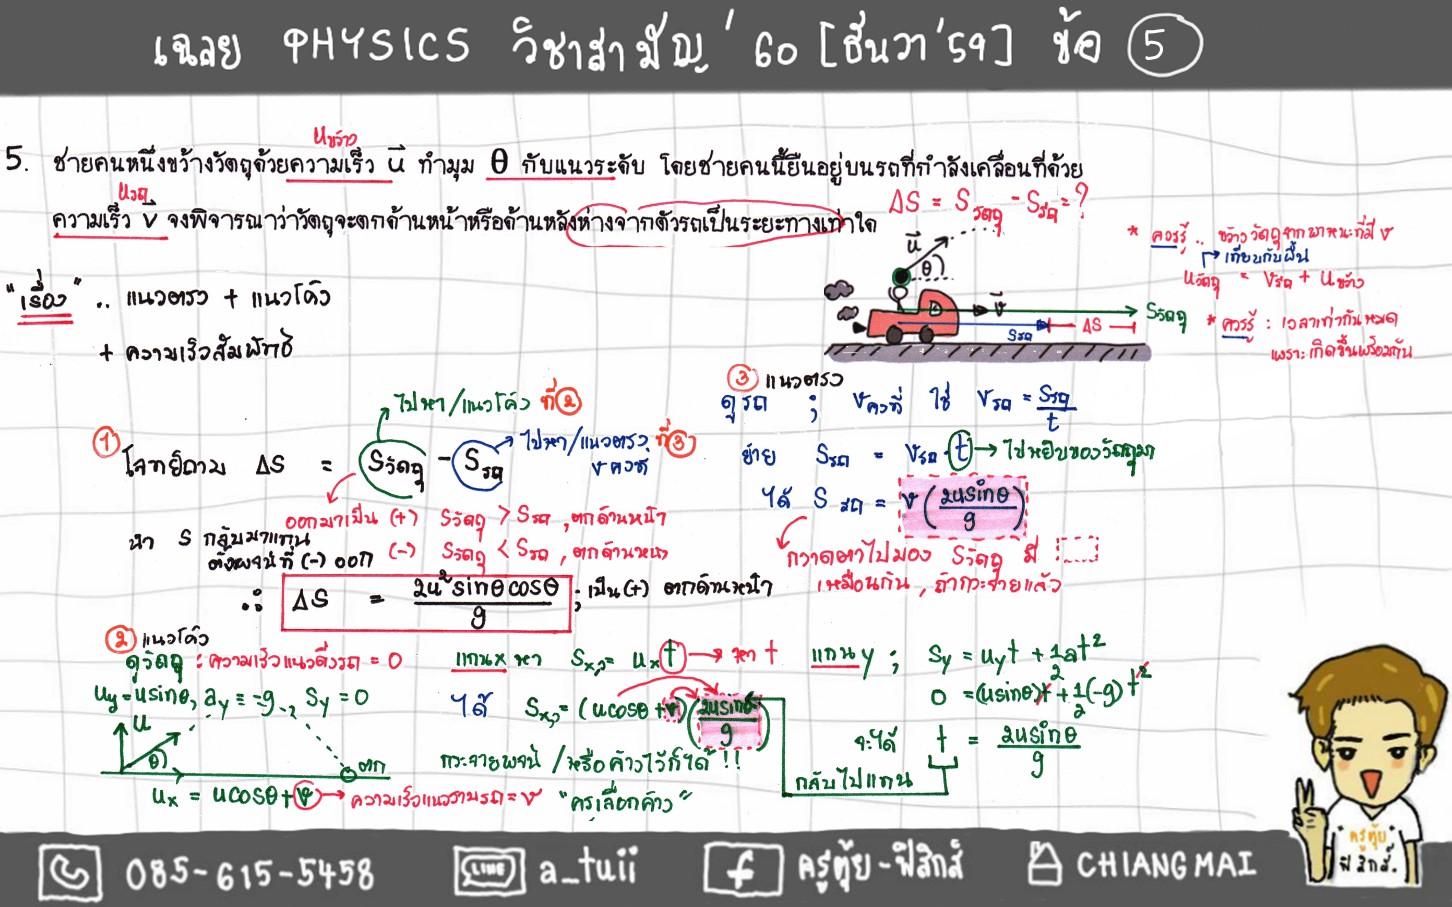 เฉลย PHYSICS วิชาสามัญ' 60 [ธันวา'59] ข้อ 5
u ขว้าง
5. ชายคนหนึ่งขว้างวัตถุด้วยความเร็ว u ทำมุม θ กับแนวระดับ โดยชายคนนี้ยืนอยู่บนรถที่กำลังเคลื่อนที่ด้วย
u รถ
ความเร็ว v จงพิจารณาว่าวัตถุจะตกด้านหน้าหรือด้านหลังห่างจากตัวรถเป็นระยะทางเท่าใด
ΔS = Sวัตถุ - Sรถ = ?
"เรื่อง" .. แนวตรง + แนวโค้ง
+ ความเร็วสัมพัทธ์
u
θ
v
Sวัตถุ
Sรถ
ΔS
* ควรรู้ .. ขว้างวัตถุจากพาหนะที่มี v
เทียบกับพื้น
uวัตถุ = vรถ + uขว้าง
* ควรรู้ : เวลาเท่ากันหมด
เพราะเกิดขึ้นพร้อมกัน
ไปหา/แนวโค้ง ที่ 2
ไปหา/แนวตรง ที่ 3
v คงที่
1 โจทย์ถาม ΔS = Sวัตถุ - Sรถ
ออกมาเป็น (+) Sวัตถุ > Sรถ , ตกด้านหน้า
(-) Sวัตถุ < Sรถ , ตกด้านหลัง
หา S กลับมาแทน
∴ ΔS = 2u²sinθcosθ/g ; เป็น (+) ตกด้านหน้า
3 แนวตรง
ดูรถ ; vคงที่ ใช้ vรถ = Sรถ/t
ย้าย Sรถ = vรถ · t → ไปหยิบของวัตถุมา
ได้ Sรถ = v(2usinθ/g)
กวาดตาไปมอง Sวัตถุ มี
เหมือนกัน , ถ้ากระจายแล้ว
2 แนวโค้ง
ดูวัตถุ : ความเร็วแนวดิ่งรถ = 0
uy = usinθ, ay = -g , Sy = 0
u
θ
ตก
ux = ucosθ + v → ความเร็วแนวราบรถ = v
แกน x หา Sx = ux t → หา t
ได้ Sx = (ucosθ + v)(2usinθ/g)
กระจายพจน์ / หรือค้างไว้ก็ได้ !!
"ครูเลือกค้าง"
แกน y ; Sy = uyt + 1/2 at²
0 = (usinθ)t + 1/2(-g)t²
จะได้ t = 2usinθ/g
กลับไปแทน
ครูตุ้ย
ฟิสิกส์.
085-615-5458
LINE a_tuii
f ครูตุ้ย-ฟิสิกส์
CHIANGMAI